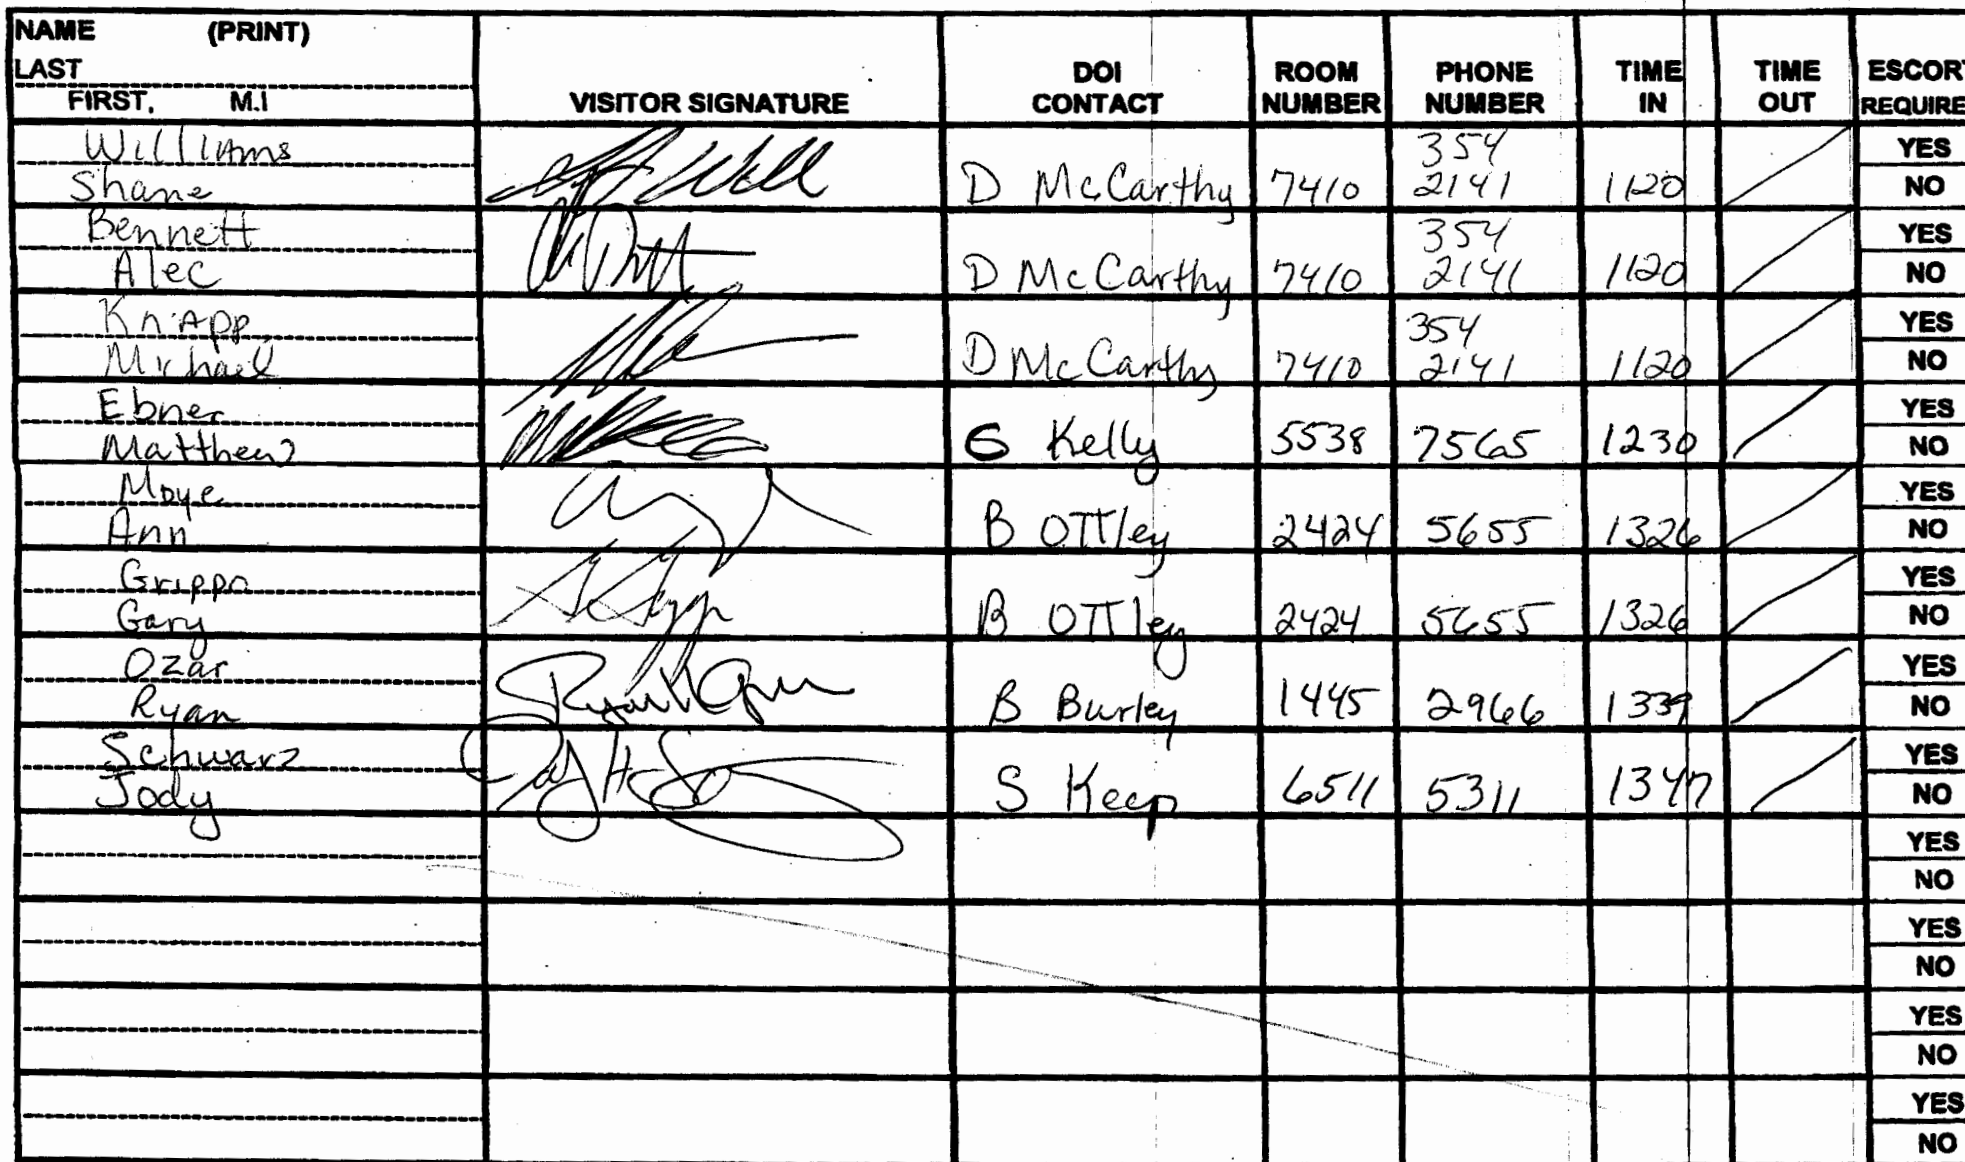 NAME (PRINT)
LAST
FIRST, M.I
VISITOR SIGNATURE
DOI
CONTACT
ROOM
NUMBER
PHONE
NUMBER
TIME
IN
TIME
OUT
ESCORT
REQUIRE
Williams
Shane
D McCarthy 7410 354
2141 1120
YES
NO
Bennett
Alec
D McCarthy 7410 354
2141 1120
YES
NO
Knapp
Michael
D McCarthy 7410 354
2141 1120
YES
NO
Ebner
Matthew
G Kelly 5538 7565 1230
YES
NO
Moye
Ann
B OTTley 2424 5655 1326
YES
NO
Grippo
Gary
B OTTley 2424 5655 1326
YES
NO
Ozar
Ryan
B Burley 1445 2966 1339
YES
NO
Schwarz
Jody
S Keep 6511 5311 1347
YES
NO
YES
NO
YES
NO
YES
NO
YES
NO